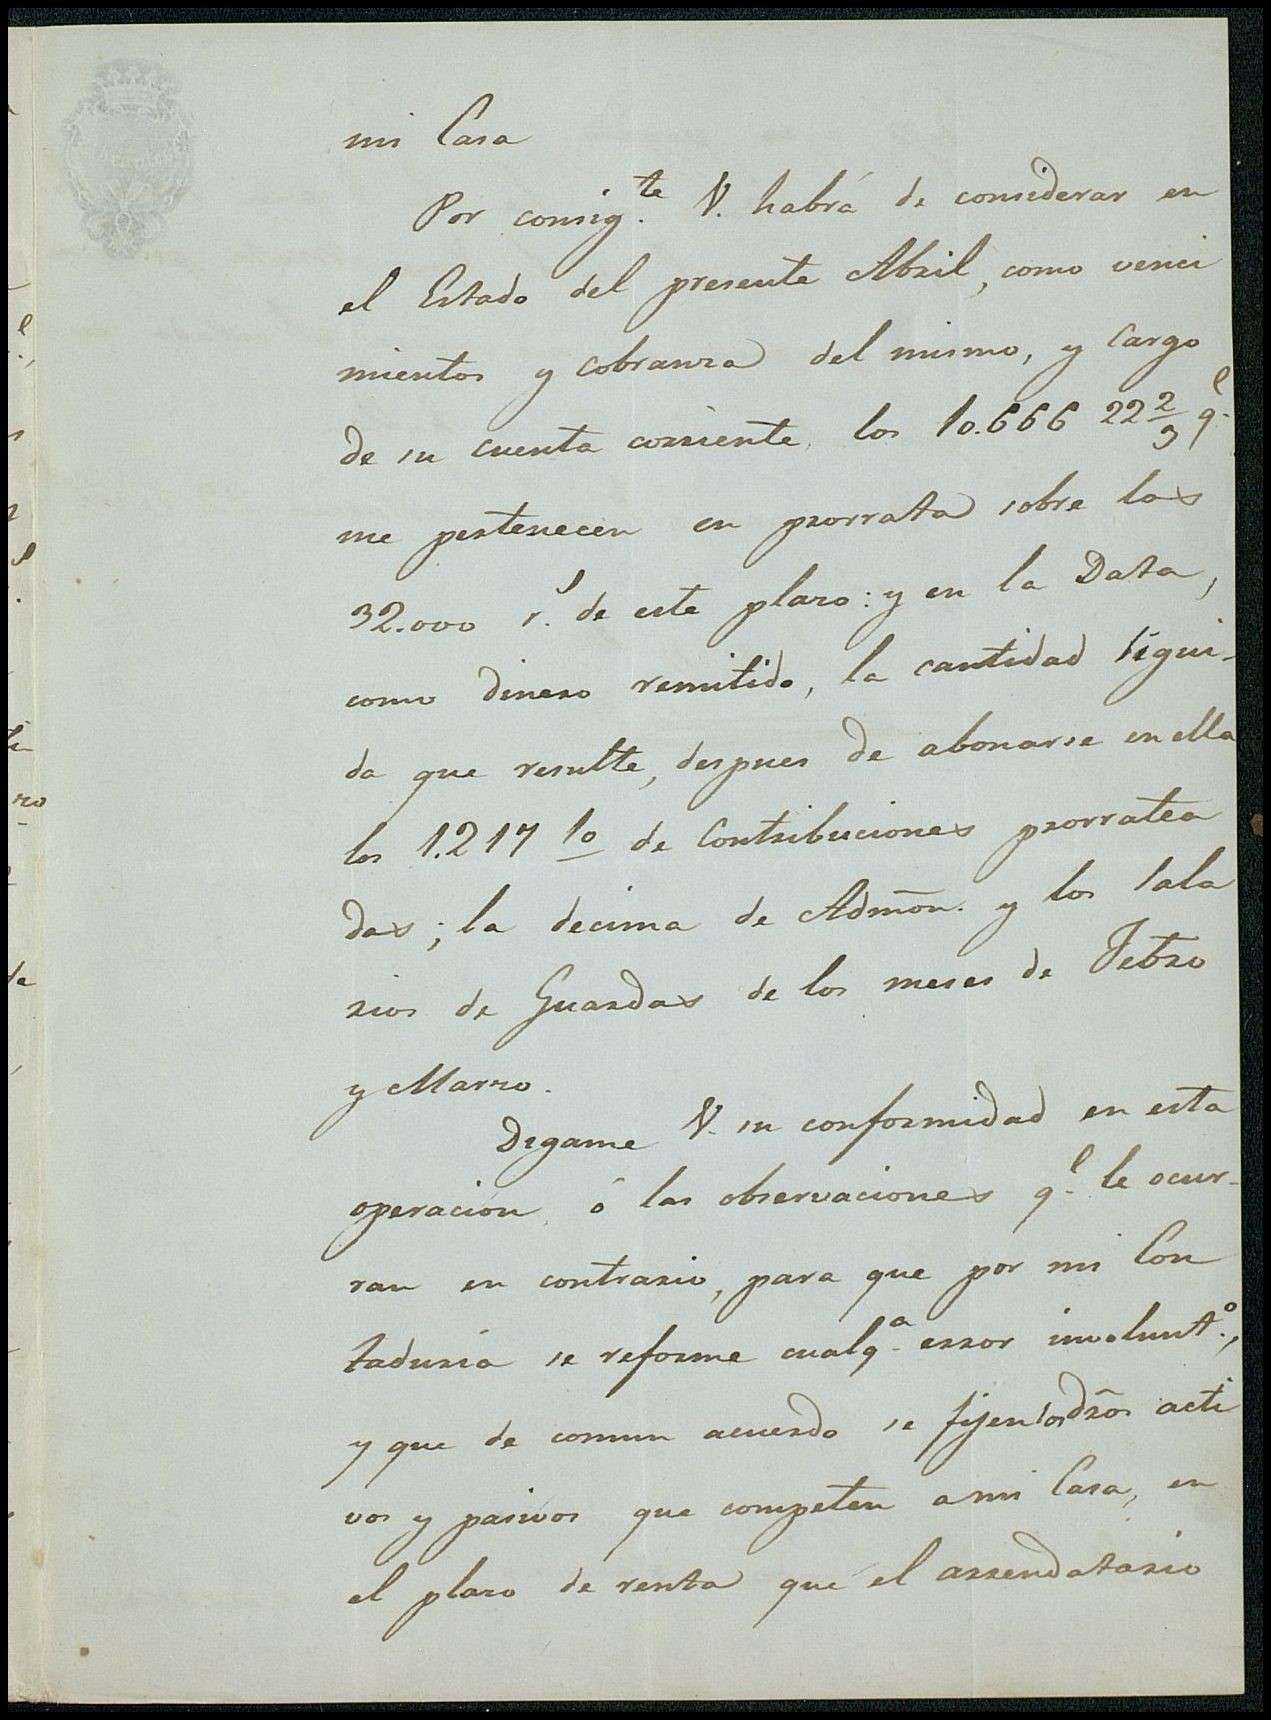 mi Casa
Por consig.te V. habrá de considerar en
el Estado del presente Abril, como venci
mientos y cobranza del mismo, y Cargo
de su cuenta corriente, los 10.666 22 2/3 q.e
me pertenecen en prorrata sobre los
32.000 r.s de este plazo: y en la Data,
como dinero remitido, la cantidad líqui-
da que resulte, despues de abonarse en ella
los 1.217 10 de Contribuciones prorratea
das; la decima de Admōn. y los sala
rios de Guardas de los meses de Febro
y Marzo.
Digame V. su conformidad en esta
operación, ó las observaciones q.e le ocur-
ran en contrario, para que por mi Con
taduría se reforme cualq.a error involunt.o,
y que de comun acuerdo se fijen los dr̃os acti
vos y pasivos que competen a mi Casa, en
el plazo de renta que el arrendatario